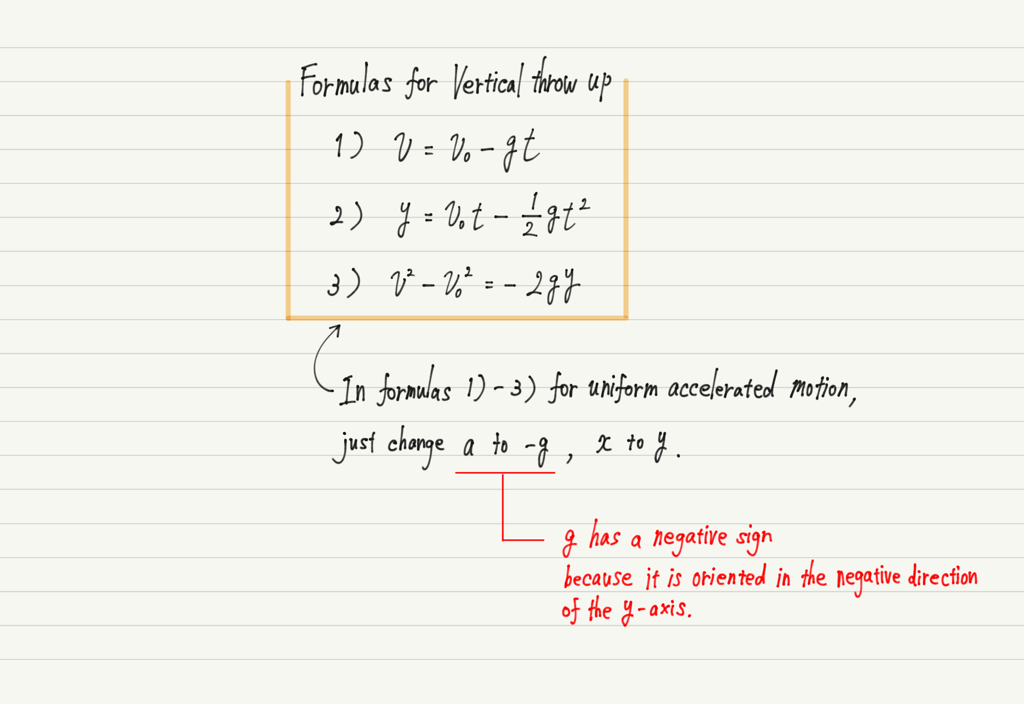 Formulas for Vertical throw up
1) v = v₀ - gt
2) y = v₀t - 1/2 gt²
3) v² - v₀² = - 2gy
In formulas 1) - 3) for uniform accelerated motion,
just change a to -g, x to y.
g has a negative sign
because it is oriented in the negative direction
of the y-axis.